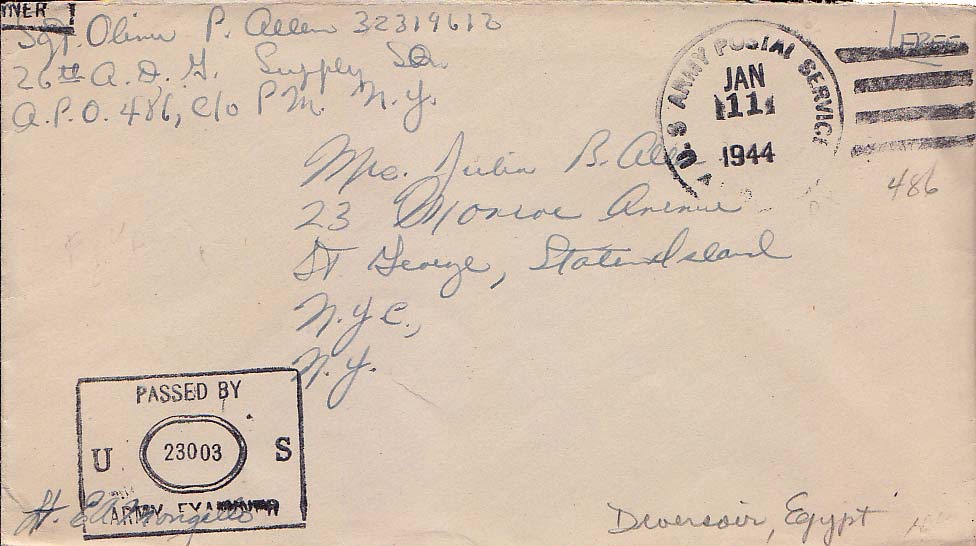 INER
Sgt. Oliver P. Allen 32319612
26th A.D.G. Supply SQ.
A.P.O. 486, c/o P.M. N.Y.
FREE
U.S ARMY POSTAL SERVICE
JAN
11
1944
486
Mrs. Julia B. Allen
23 Monroe Avenue
St George, Staten Island
N.Y.C.,
N.Y.
PASSED BY
U 23003 S
ARMY EXAMINER
Lt.
Deversoir, Egypt